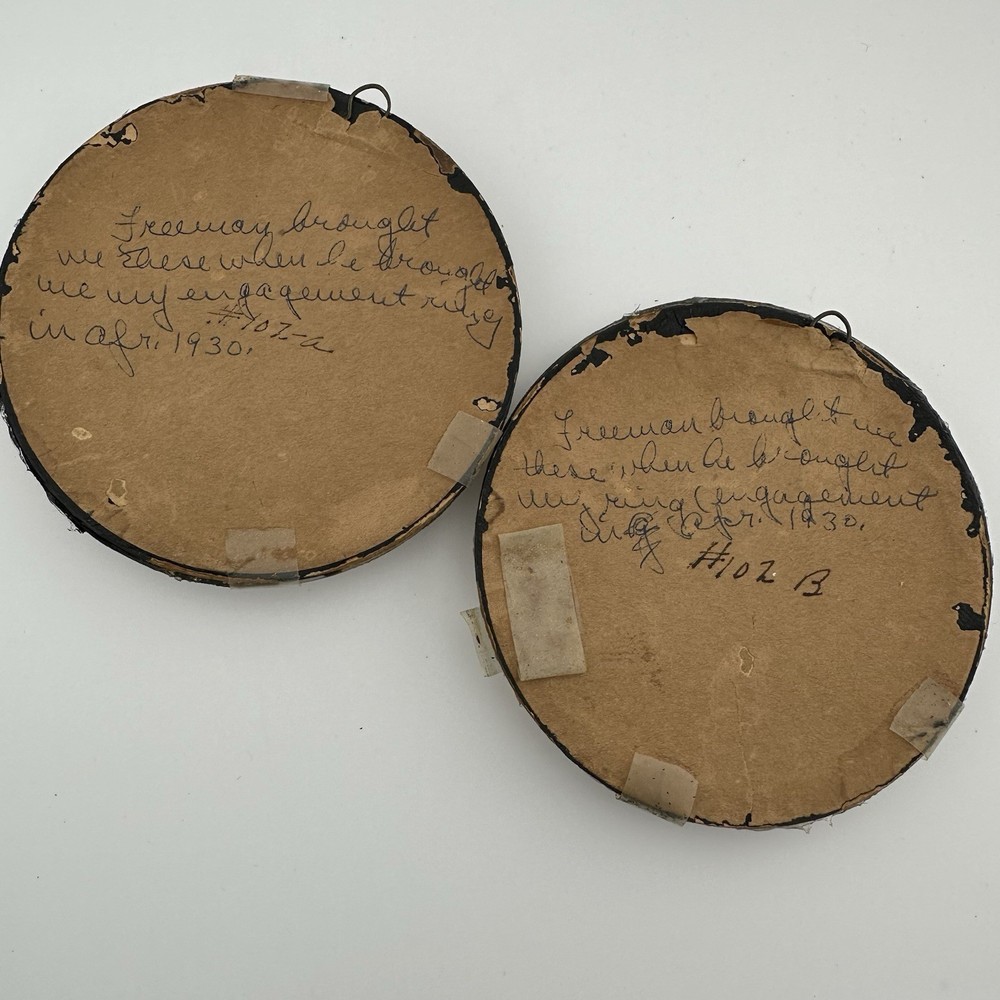 Freeman brought
me these when he brought
me my engagement ring
#102-a
in Apr. 1930.
Freeman brought me
these when he brought
my ring (engagement
in Apr. 1930.
#102 B